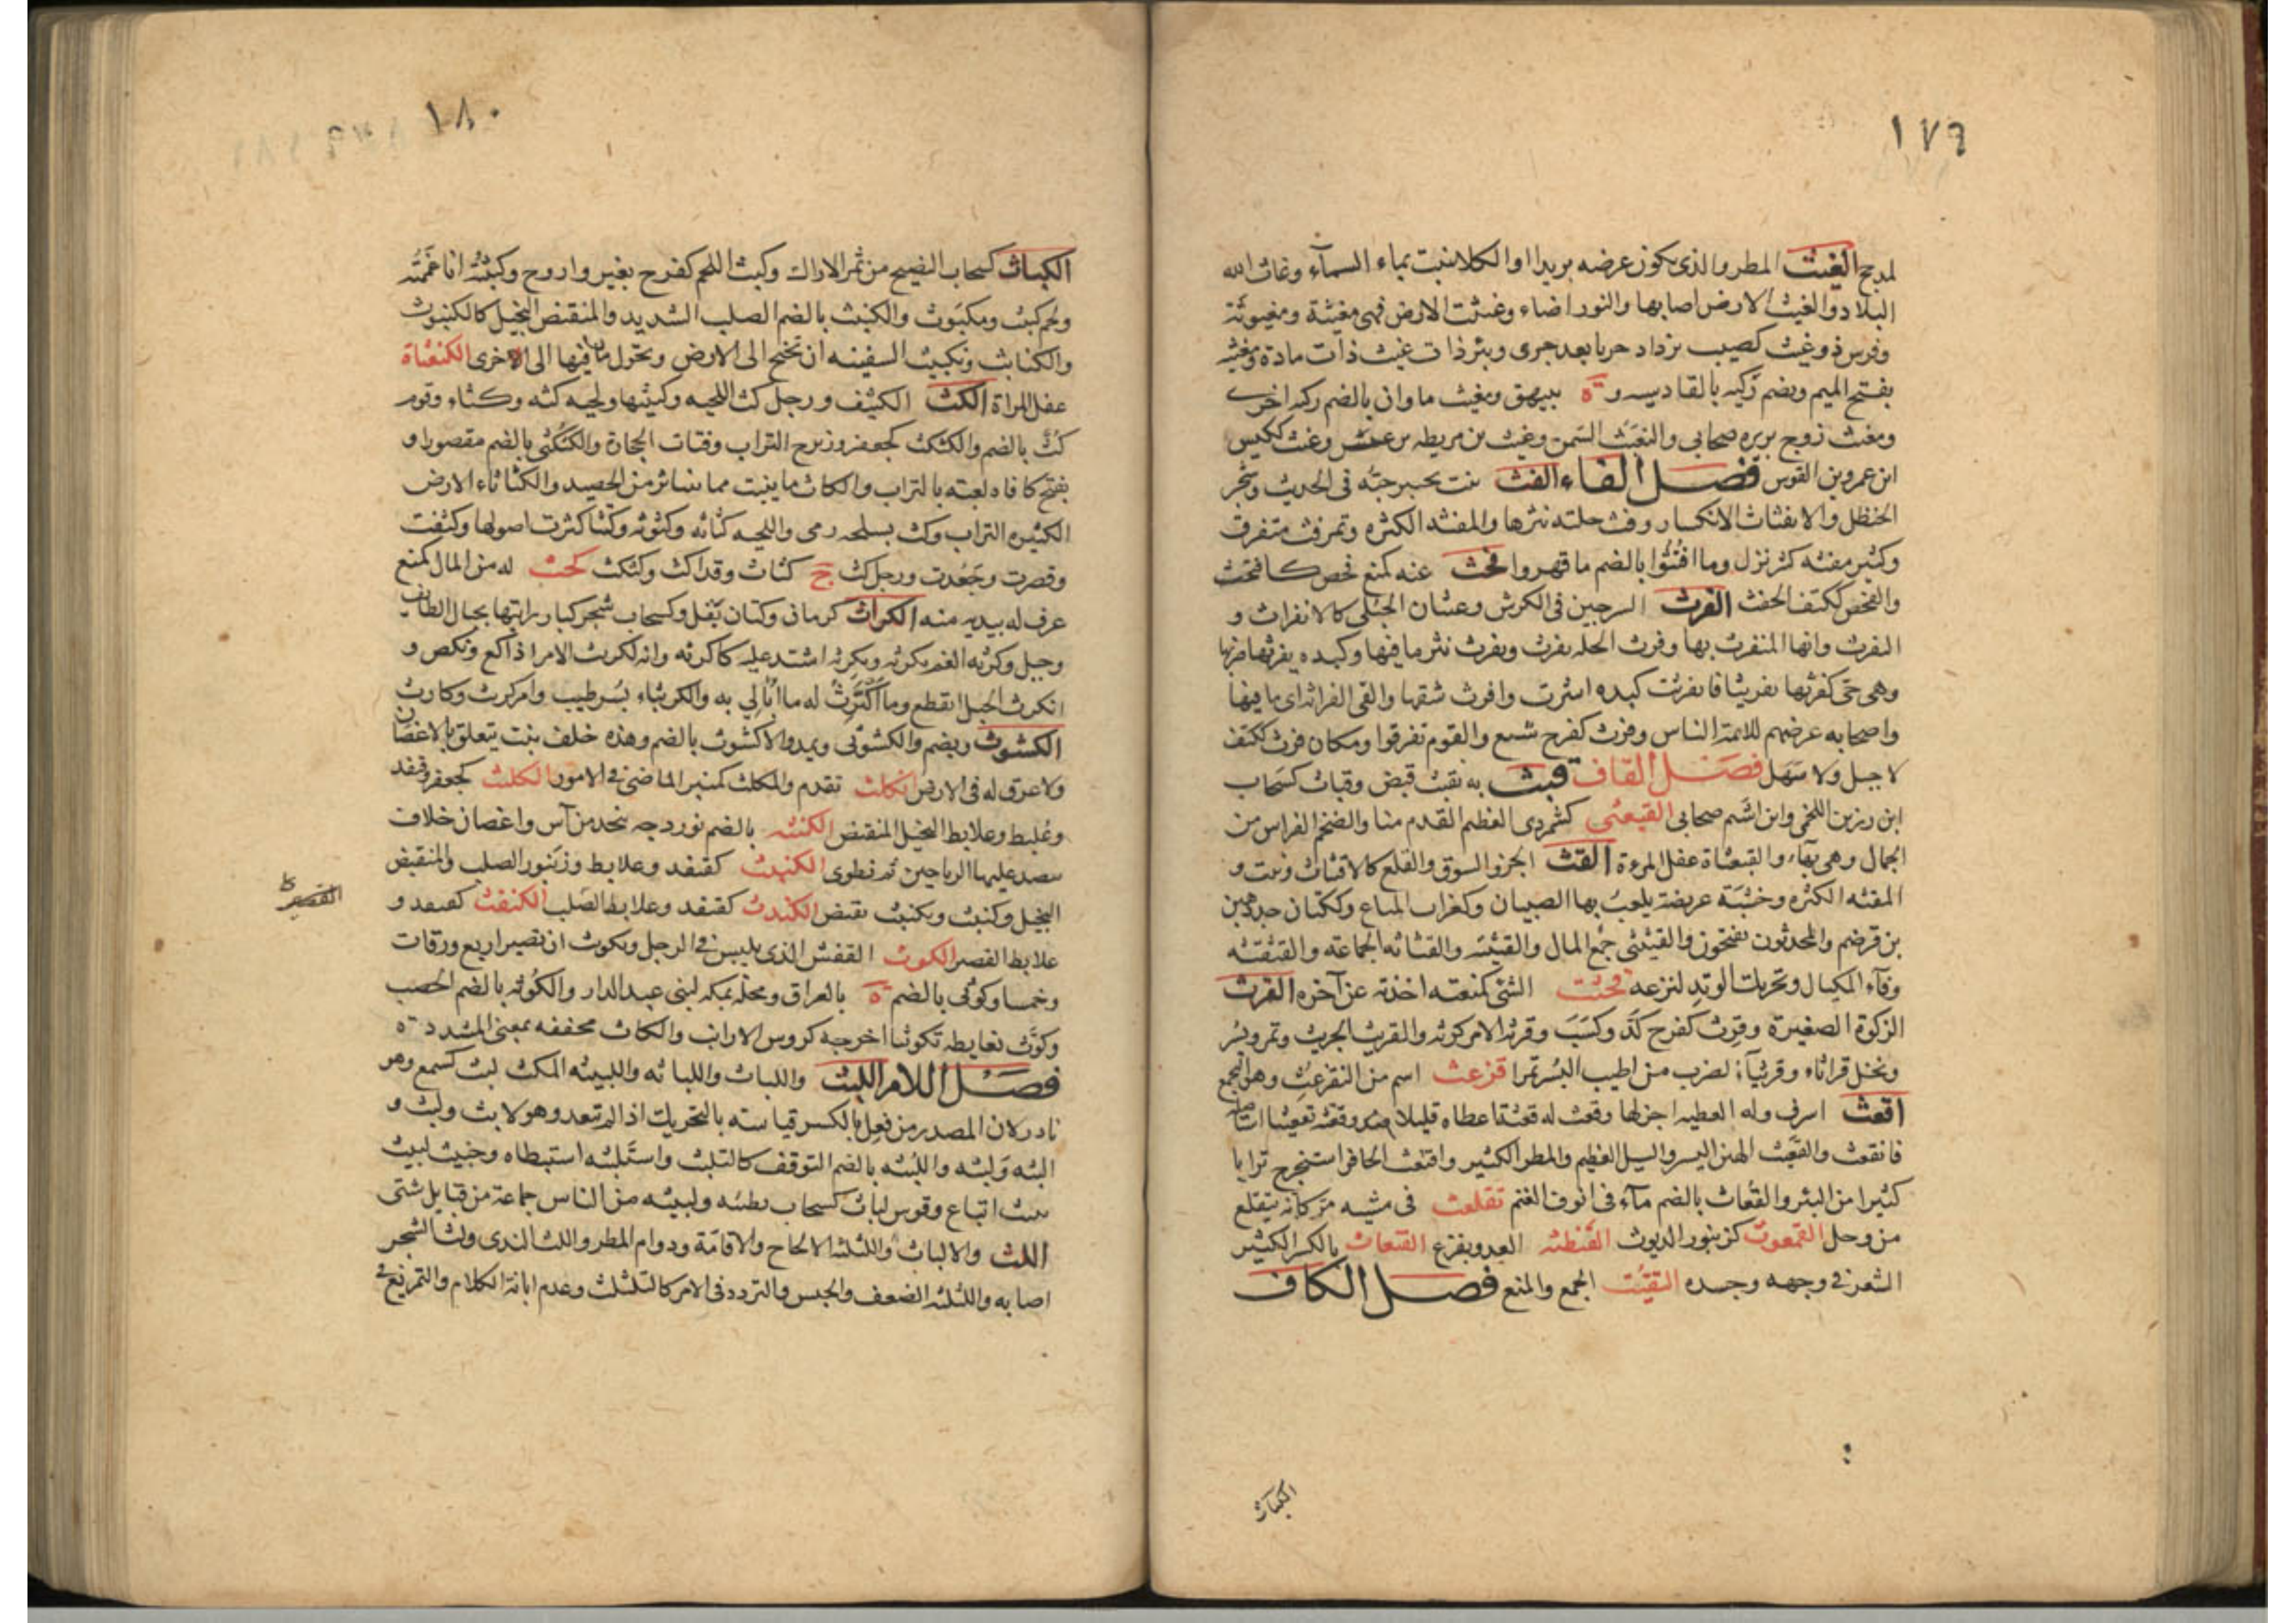 ١٧٩
لمدبج الغيث المطر والذى يكون عرضه بريدا او الكلا ينبت بماء السمآء وغاث الله
البلاد والغيث الارض اصابها والنور اضاء وغيثت الارض فهى مغيثة ومغيوثة
وفرس ذو غيث كصيب يزداد جريا بعد جرى وبئر ذات غيث ذات مادة ومغيثه
بفتح الميم وبضم ركيه بالقادسيه و ة ببيهق ومغيث ماوان بالضم ركيه اخرى
ومغيث زوج بريره صحابى والتغيث السمن وغيث بن مريطه بن وغيث ككيس
ابن عمرو بن الغوث فصل الفاء الفث نبت يختبز حبّه فى الجدب وشجر
الحنظل والانفثاث الانكسار وفث جلته نثرها والمفثه الكثره وتمر فث متفرق
وكثير مفثه كثر نزل وما افتُثّوا بالضم ما قهروا فحث عنه كمنع فحص كافتحث
والفحث ككتف الحفث الفرث السرجين فى الكرش وغثيان الحبلى كالانفراث و
التفرث وانها المنفرث بها وفرث الجله يفرث ويفرث نثر ما فيها وكبده يفرثها ضربها
وهى حتى كفرثها تفريثا فانفرثت كبده انتثرت وافرث شقها والقى الفراثه اى ما فيها
واصحابه عرضهم للائمة الناس وفرث كفرح شبع والقوم تفرقوا ومكان فرث ككتف
لا جبل ولا سهل فصل القاف قبث به يقبث قبض وقباث كسحاب
ابن رزين اللخمى وابن اشيم صحابى القبعثى كشمردى العظيم القدم منا والضخم الفراسن من
الجمال وهى بهآء والقبعثاة عفل المرءة القث الجر والسوق والقلع كالاقتثاث ونبت و
المقثه الكثره وخشبة عريضة يلعب بها الصبيان وكغراب المتاع وككتان جد جهين
بن قرضم والمحدثون يفتحون والقثيثى جمع المال والقثيثه والقثاثه الجماعة والقثقثه
وفآء المكيال وتحريك الوتد لنزعه قحثت الشئ كمنعته اخذته عن آخره القرث
الركوة الصغيرة وقرث كفرح كدّ وكسب وقرثه الامر كرثه والقريث الجريث وتمر وبسر
ونخل قراثاء وقريثآء لضرب من اطيب البسر تمرا قرعث اسم من التقرعث وهو التجمع
اقعث اسرف وله العطيه اجزلها وقعث له قعثة اعطاه قليلا ضد وقعثه تقعيثا استاصله
فانقعث والقعيث الهين اليسير والسيل العظيم والمطر الكثير واقتعث الحافر استخرج ترابا
كثيرا من البئر والقعاث بالضم مآء فى انوف الغنم تقلعث فى مشيه مرّ كانه يتقلع
من وحل القمعوث كزنبور الديوث القنطثه العدو بفزع القنعاث بالكسر الكثير
الشعر فى وجهه وجسده التقيث الجمع والمنع فصل الكاف
الكباث
١٨٠
الكباث كسحاب النضيج من ثمر الاراك وكبث اللحم كفرح تغير واروح وكبثته انا غممته
ولحم كبث ومكبوث والكنبث بالضم الصلب الشديد والمنقبض البخيل كالكنبوث
والكنابث وتكبيث السفينه ان تجنح الى الارض وتحول ما فيها الى الاخرى الكنعثاة
عفل المراة الكث الكثيف ورجل كث اللحيه وكثيثها ولحيه كثه وكثاء وقوم
كث بالضم والكثكث كجعفر وزبرج التراب وفتات الحجارة والكثكثى بالضم مقصورا و
بفتح كافا لعبة بالتراب والكاث ما ينبت مما يتناثر من الحصيد والكثاثاء الارض
الكثيره التراب وكث بسلحه رمى واللحيه كثاثه وكثوثه وكثثا كثرت اصولها وكثفت
وقصرت وجعدت ورجل كث ج كثاث وقد اكث وكثكث كحث له من المال كمنع
غرف له بيديه منه الكراث كرمان وكتان بقل وكسحاب شجر كبار رايتها بجبال الطائف
وجبل وكرثه الغم يكرثه ويكرثه اشتد عليه كاكرثه وانه لكريث الامر اذا كع ونكص و
انكرث الحبل انقطع وما اكترث له ما ابالى به والكريثاء بسر طيب وامر كريث وكارث
الكشوث ويضم والكشوثى ويمد والاكشوث بالضم وهذه خلف نبت يتعلق بالاغصان
ولا عرق له فى الارض انكلث تقدم والمكلث كمنبر الماضى فى الامور الكلبث كجعفر وقنفد
وعُلبط وعلابط البخيل المنقبض الكنثه بالضم نوردجه تتخد من آس واغصان خلاف
تنضد عليها الرياحين ثم تطوى الكنبث كقنفد وعلابط وزنبور الصلب والمنقبض
البخيل وكنبث وتكنبث تقبض الكندث كقنفد وعلابط الصلب الكنفث كقنفد و
علابط القصير الكوث القفش الذى يلبس فى الرجل وتكوث ان تصير اربع ورقات
وخمسا وكوثى بالضم ة بالعراق ومحلّه بمكه لبنى عبد الدار والكوثه بالضم الخصب
وكوّث بغايطه تكويثا اخرجه كروس الارانب والكاث مخففه بمعنى المشدد ة
فصل اللام اللبث واللباث واللباثه واللبيثه المكث لبث كسمع وهو
نادر لان المصدر من فعِل بالكسر قياسه بالتحريك اذا لم يتعد وهو لابث ولبث و
البثه ولبثه واللُبثه بالضم التوقف كالتلبث واستلبثه استبطاه وخبيث لبيث
نبيث اتباع وقوس لباث كسحاب بطيئه ولبيثه من الناس جماعة من قبايل شتى
اللث والالثاث واللثلثه الالحاح والاقامة ودوام المطر واللث الندى ولث الشجر
اصابه واللثلثه الضعف والحبس والتردد فى الامر كالتلثلث وعدم ابانة الكلام والتمريغ فى
القصير